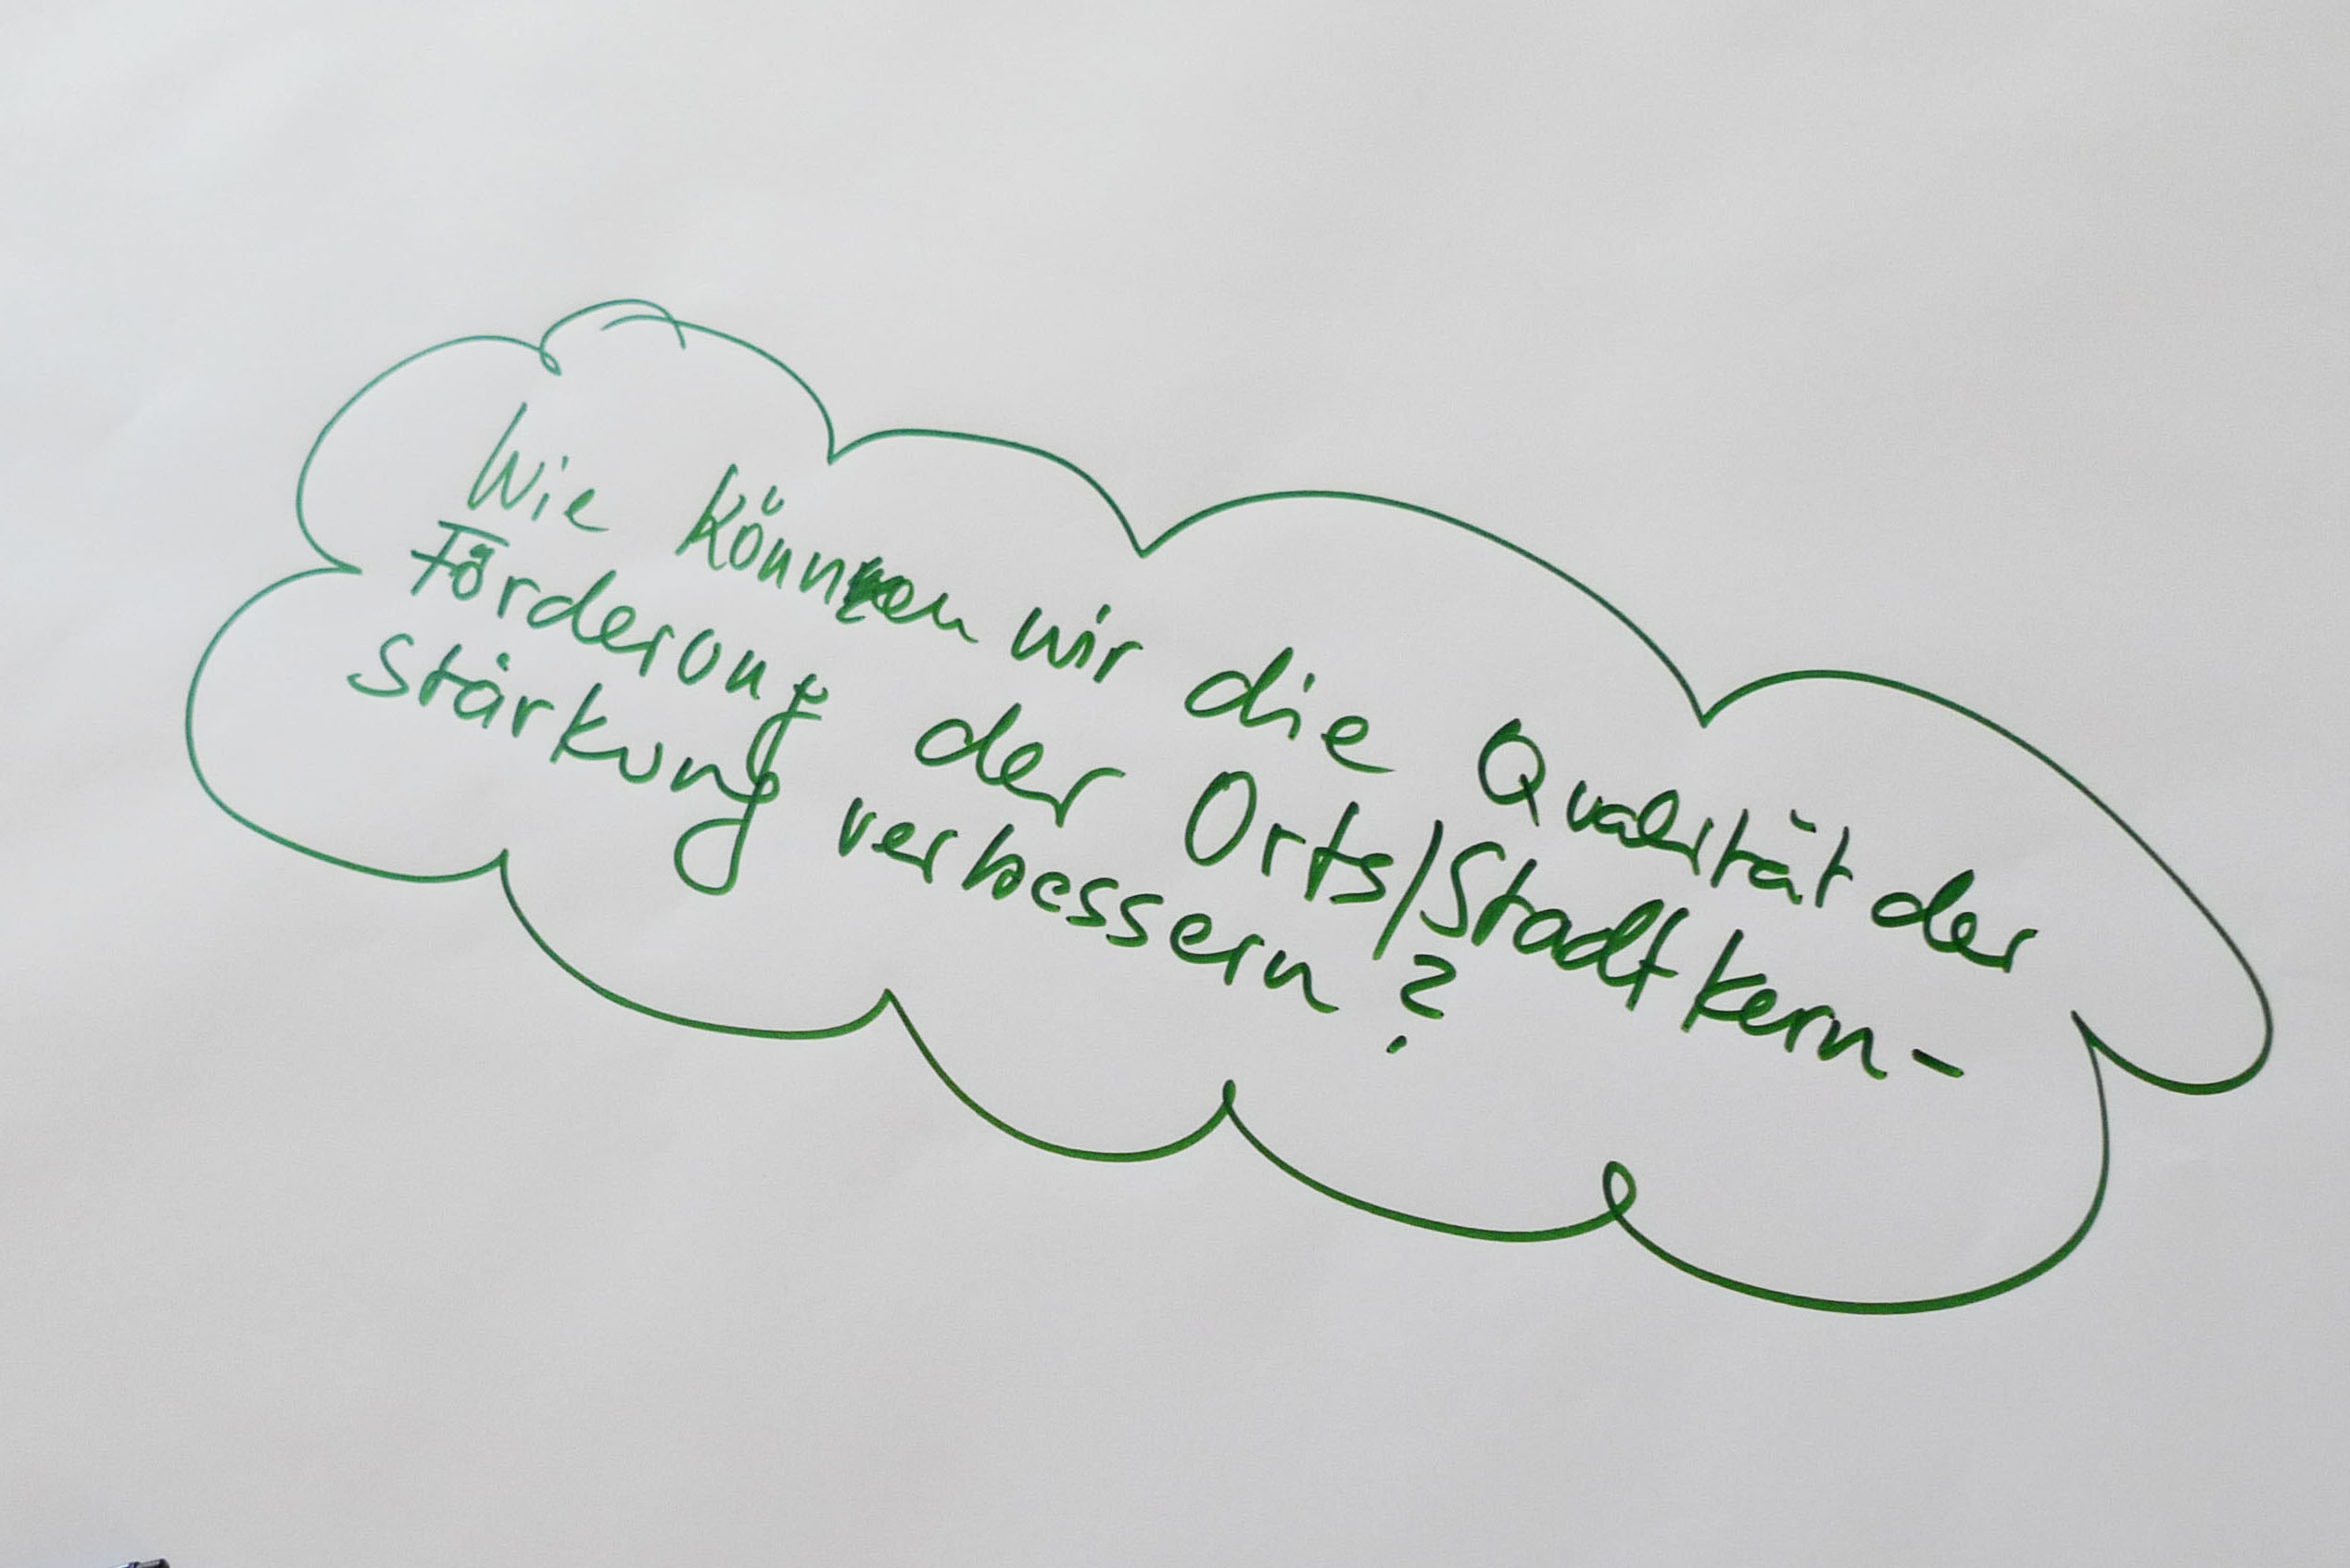 Wie können wir die Qualität der
Förderung der Orts/Stadtkern-
stärkung verbessern?